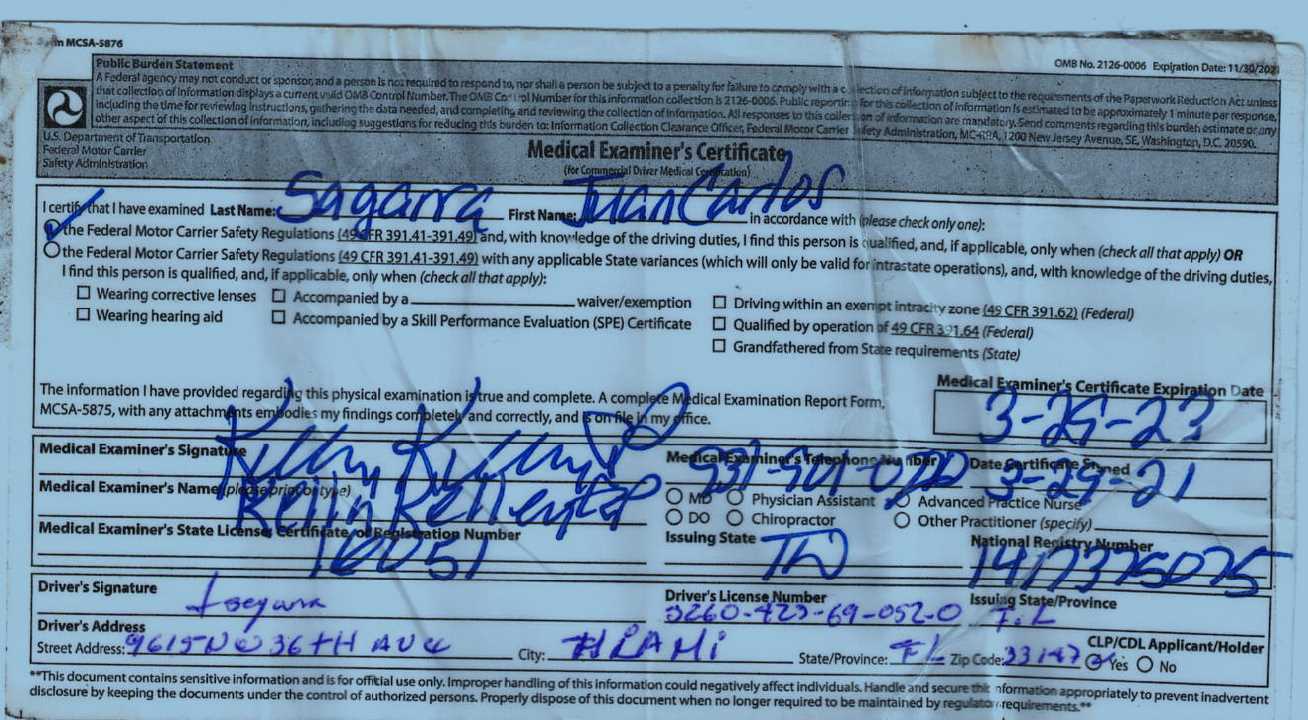 Form MCSA-5876
OMB No. 2126-0006 Expiration Date: 11/30/2021
Public Burden Statement
A Federal agency may not conduct or sponsor, and a person is not required to respond to, nor shall a person be subject to a penalty for failure to comply with a collection of information subject to the requirements of the Paperwork Reduction Act unless
that collection of information displays a current valid OMB Control Number. The OMB Control Number for this information collection is 2126-0006. Public reporting for this collection of information is estimated to be approximately 1 minute per response,
including the time for reviewing instructions, gathering the data needed, and completing and reviewing the collection of information. All responses to this collection of information are mandatory. Send comments regarding this burden estimate or any
other aspect of this collection of information, including suggestions for reducing this burden to: Information Collection Clearance Officer, Federal Motor Carrier Safety Administration, MC-RRA, 1200 New Jersey Avenue, SE, Washington, D.C. 20590.
U.S. Department of Transportation
Federal Motor Carrier
Safety Administration
Medical Examiner's Certificate
(for Commercial Driver Medical Certification)
I certify that I have examined Last Name: Sagarra First Name: Juan Carlos in accordance with (please check only one):
the Federal Motor Carrier Safety Regulations (49 CFR 391.41-391.49) and, with knowledge of the driving duties, I find this person is qualified, and, if applicable, only when (check all that apply) OR
the Federal Motor Carrier Safety Regulations (49 CFR 391.41-391.49) with any applicable State variances (which will only be valid for intrastate operations), and, with knowledge of the driving duties,
I find this person is qualified, and, if applicable, only when (check all that apply):
Wearing corrective lenses Accompanied by a waiver/exemption Driving within an exempt intracity zone (49 CFR 391.62) (Federal)
Wearing hearing aid Accompanied by a Skill Performance Evaluation (SPE) Certificate Qualified by operation of 49 CFR 391.64 (Federal)
Grandfathered from State requirements (State)
The information I have provided regarding this physical examination is true and complete. A complete Medical Examination Report Form,
MCSA-5875, with any attachments embodies my findings completely and correctly, and is on file in my office.
Medical Examiner's Certificate Expiration Date
3-29-23
Medical Examiner's Signature
Medical Examiner's Telephone Number
Date Certificate Signed
3-29-21
Medical Examiner's Name (please print or type)
MD Physician Assistant Advanced Practice Nurse
DO Chiropractor Other Practitioner (specify)
Medical Examiner's State License, Certificate, or Registration Number
16051
Issuing State
TN
National Registry Number
1417375075
Driver's Signature
Driver's License Number
S260-423-69-052-0
Issuing State/Province
FL
Driver's Address
Street Address: 9615 NW 36TH AVE City: MIAMI State/Province: FL Zip Code: 33147
CLP/CDL Applicant/Holder
Yes No
**This document contains sensitive information and is for official use only. Improper handling of this information could negatively affect individuals. Handle and secure this information appropriately to prevent inadvertent
disclosure by keeping the documents under the control of authorized persons. Properly dispose of this document when no longer required to be maintained by regulatory requirements.**